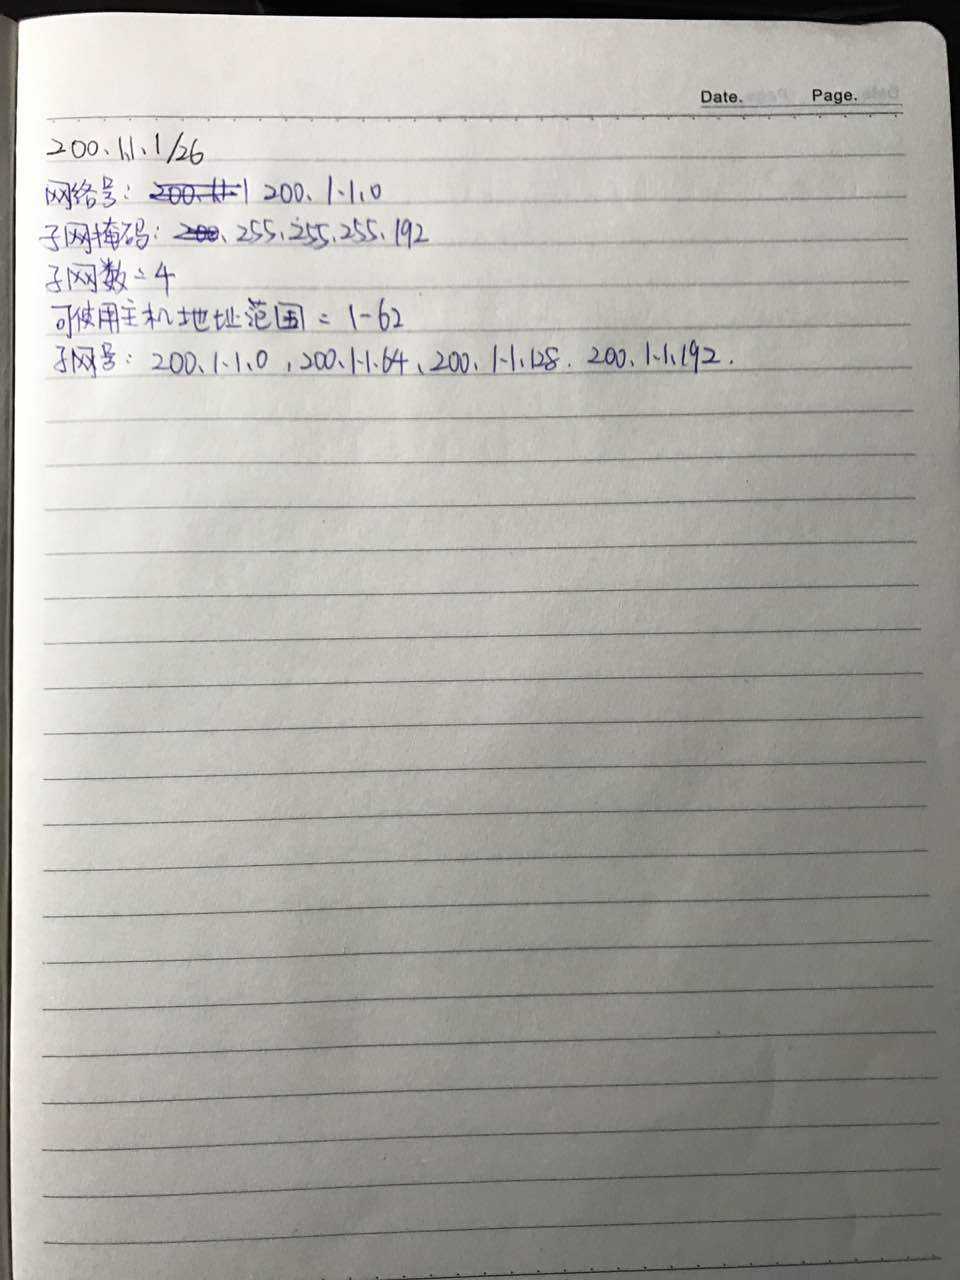 Date. Page.
200.1.1.1/26
网络号: 200.1.1.0
子网掩码: 255.255.255.192
子网数=4
可使用主机地址范围=1-62
子网号: 200.1.1.0,200.1.1.64、200.1.1.128. 200.1.1.192.